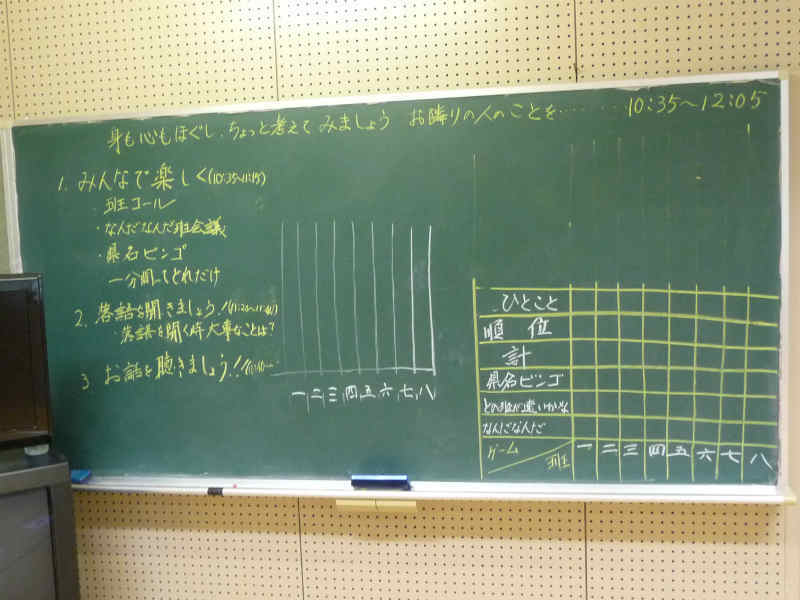 身も心もほぐし、ちょっと考えてみましょう お隣りの人のことを……… 10:35〜12:05
1. みんなで楽しく(10:35〜11:15)
・班コール
・なんだなんだ班会議
・県名ビンゴ
一分間でどれだけ
2. 落語を聞きましょう!
落語を聞く時大事なことは?
3. お話を聴きましょう!!
一 二 三 四 五 六 七 八
ひとこと
順位
計
県名ビンゴ
どの班が速いかな
なんだなんだ
ゲーム 班 一 二 三 四 五 六 七 八